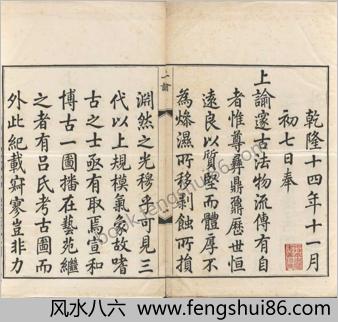 乾隆十四年十一月
初七日奉
上諭邃古法物流傳有自
者惟尊彝鼎鼐歷世恒
遠良以質堅而體厚不
為燥濕所移剝蝕所損
上諭
淵然之光穆乎可見三
代以上規模氣象故嗜
古之士亟有取焉宣和
博古一圖播在藝苑繼
之者有呂氏考古圖而
外此紀載寂寥豈非力
book.fengshui86.com
风水八六 - www.fengshui86.com